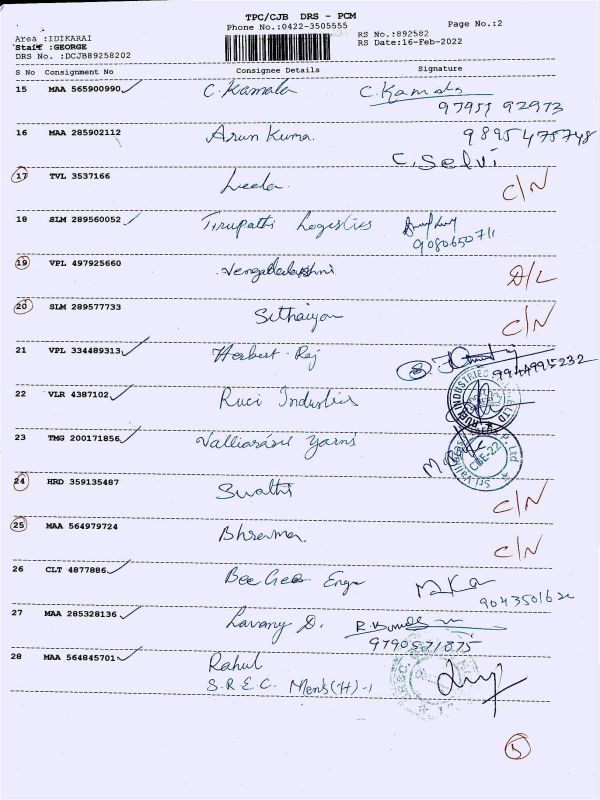 TPC/CJB DRS - PCM
Phone No.:0422-3505555
Page No.:2
Area :IDIKARAI
RS No.:892582
Staff :GEORGE
RS Date:16-Feb-2022
DRS No. :DCJB89258202
S No Consignment No Consignee Details Signature
15 MAA 565900990 C. Kamala C. Kamala
97955 92973
16 MAA 285902112 Arun Kumar. 9895475748
C. Selvi
17 TVL 3537166 Leela C/N
18 SLM 289560052 Tirupathi Logistics
9080650711
19 VPL 497925660 D/L
20 SLM 289577733 Sithaiyan C/N
21 VPL 334489313 Herbert Raj
9944995232
22 VLR 4387102 Ruci Industries
23 TMG 200171856 Valliarasu Yarns
24 HRD 359135487 Swathi C/N
25 MAA 564979724 C/N
26 CLT 4877886 Bee Gee Engg
27 MAA 285328136 Lavany D.
9790571875
28 MAA 564845701 Rahul
S.R.E.C. Men's (H)-1
5